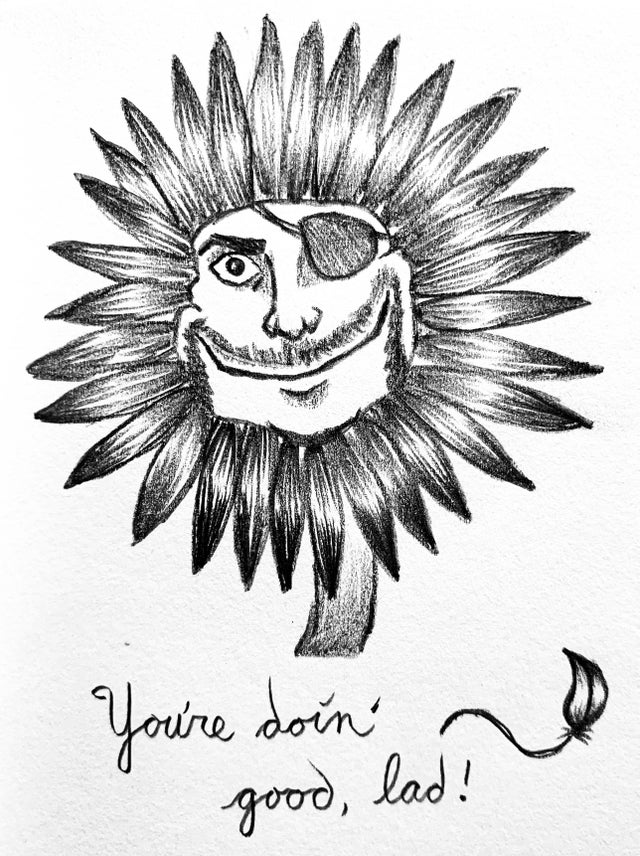 You're doin'
good, lad!